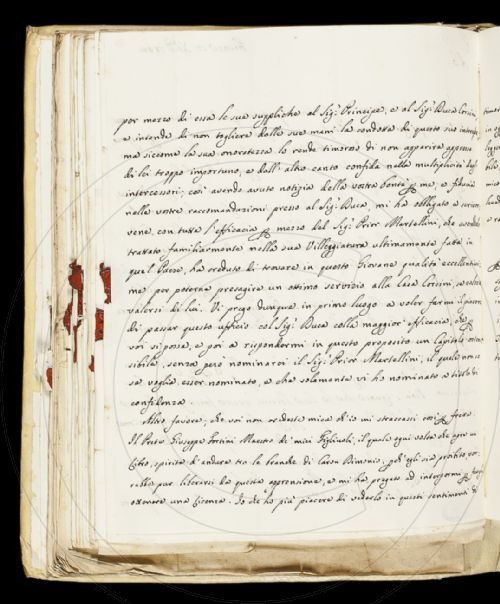 per mezzo di essa le sue suppliche al Sig.r Principe, e al Sig.r Duca Corsini,
e intende di non togliere dalle sue mani la condotta di questo suo
ma siccome la sua onoratezza lo rende timoroso di non apparire appresso
di lei troppo importuno, e dall'altro canto confida nella multiplicità degl'
intercessori; così avendo avuto notizia della vostra bontà me, e fiducia
nelle vostre raccomandazioni presso al Sig.r Duca, mi ha obbligato a
vene con tutta l'efficacia mezzo del Sig.r Prior Martellini, che avendolo
trattato familiarmente nella sua Villeggiatura ultimamente fatta in
quel Paese, ha creduto di trovare in questo Giovane qualità eccellentissi
me per poterne presagire un ottimo servizio alla Casa Corsini, se
valersi di lui. Vi prego dunque in primo luogo a voler farmi il piacere
di passar questo ufficio col Sig.r Duca colla maggior efficacia, che
voi si possa, e poi a rispondermi in questo proposito un Capitolo
sibile, senza però nominarci il Sig.r Prior Martellini, il quale non
sa voglia esser nominato, e che solamente vi ho nominato a titolo di
confidenza.
Altro favore; che voi non credeste mica ch'io mi straccassi così
Il Prete Giuseppe Fortini Maestro di miei Figlioli, il quale ogni volta che apre un
Libro, spirita d'andare tra le branche di Caron Dimonio, ch'egli sia proibito
rebbe pur liberarsi da questa apprensione, e mi ha pregato ad interpormi
ottenere una licenza. Io che ho più piacere di vederlo in questi sentimenti di